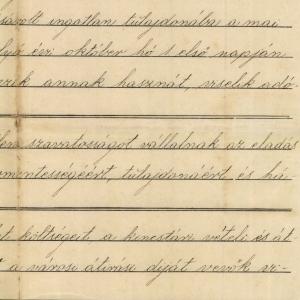 ingatlan tulajdonába a mai
évi október hó 1 első napján
annak hasznát, viselik adó-
szavatosságot vállalnak az eladás
mentességéért, tulajdonáért és há-
költségeit a kincstári vételi és át
a városi átirási díját vevők vi-